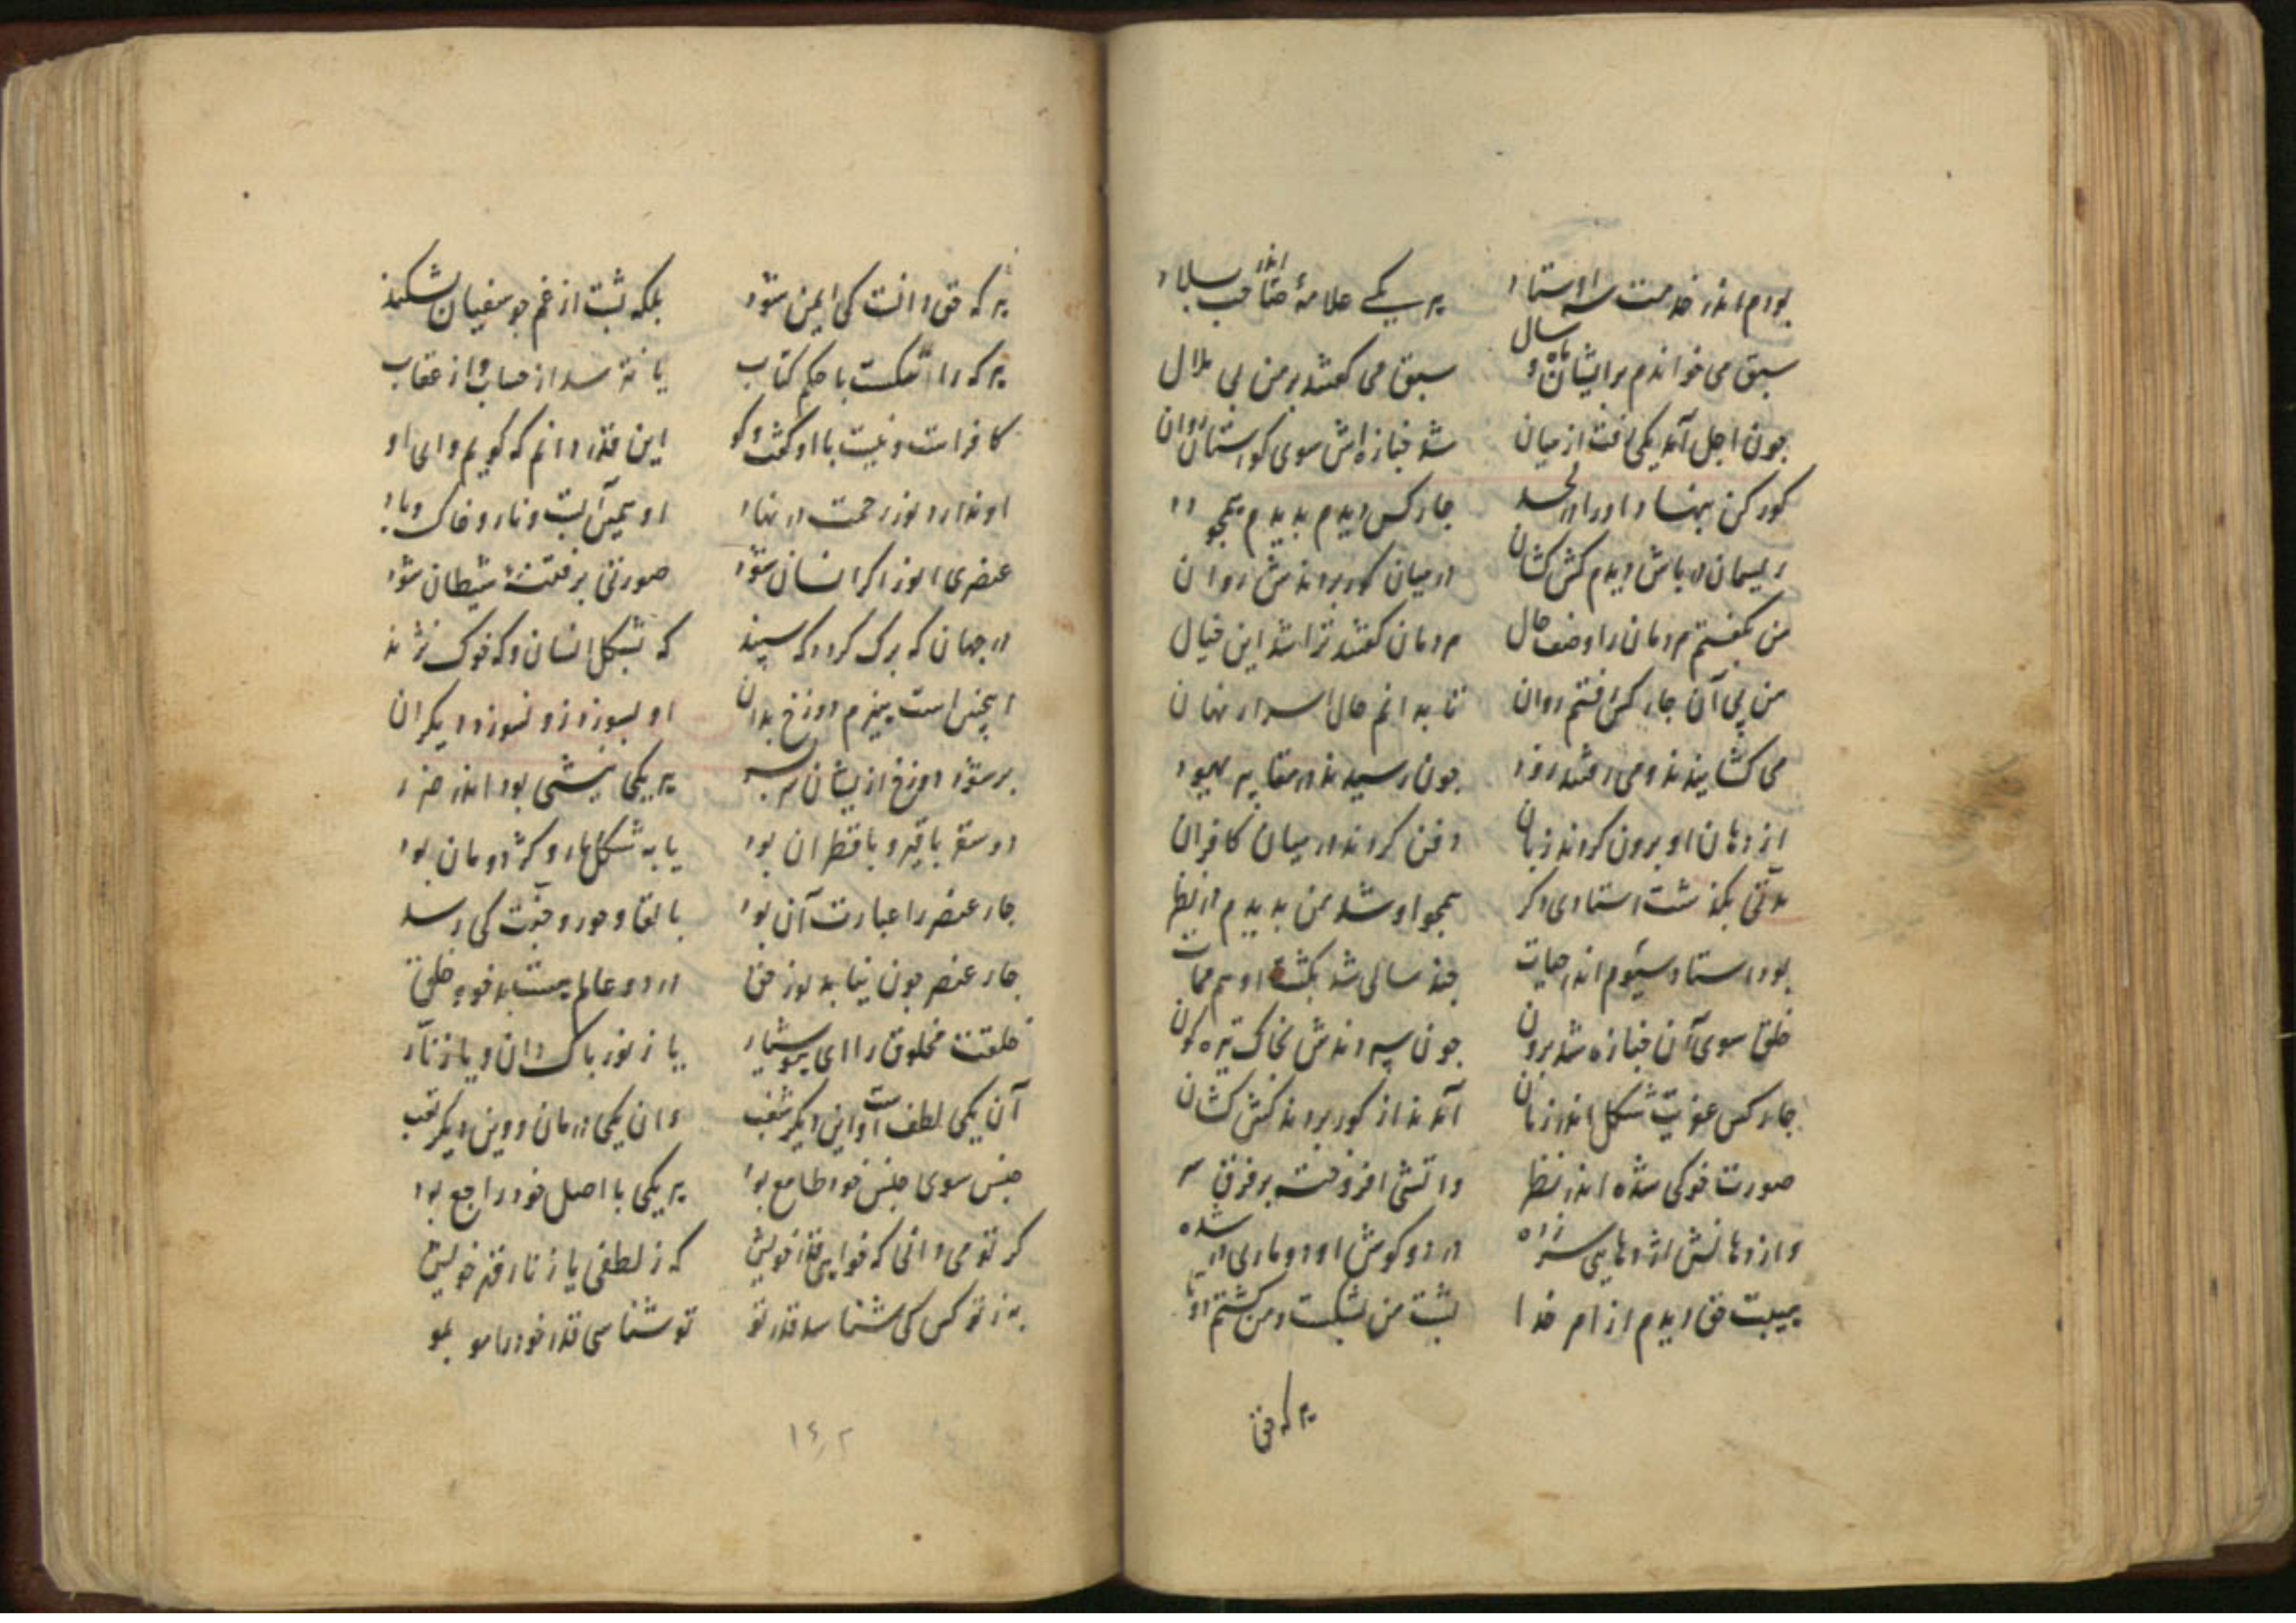 بودم اندر خدمت سه اوستاد هر یکی علامهٔ صاحب بلاد
سبق می خواندم برایشان ماه و سال سبق می گفتند بر من بی ملال
چون اجل آمد یکی رفت از میان شد جنازه اش سوی کورستان روان
کورکن بنهاد او را در لحد چار کس دیدم بدیدم همچو دد
ریسمان در پاش دیدم کش کشان در میان کور بردندش روان
من بگفتم مردمان را وصف حال مردمان گفتند ترا شد این خیال
من پی آن چار کس رفتم روان تا بدانم حال اسرار نهان
می کشانیدند و می رفتند زود چون رسیدند در مقابر یهود
از دهان او برون کردند زبان دفن کردند در میان کافران
مدتی بکذشت استادی دکر همچو او شد من بدیدم در نظر
بود استاد سیوم اندر حیات چند سالی شد بکشت او هم ممات
خلق سوی آن جنازه شد برون چون سپردندش بخاک تیره کون
چار کس عفریت شکل اندر زمان آمدند از کور بردند کش کشان
صورتا خوکی شده اندر نظر و آتشی افروخته بر فرق سر
و از دهانش اژدهایی سر زده در دو کوش او دو ماری در شده
هیبت حق دیدم از امر خدا پشت من بشکست و من کشتم دوتا
هر که حق
هر که حق دانست کی ایمن شود بلکه پشت از غم چو سفیان بشکند
هر که را شکست با حکم کتاب یا نترسد از حساب و از عقاب
کافر است و نیست با او کفت و کو این قدر دانم که کویم وای او
او ندارد نور رحمت در نهاد او همین آبست و نار و خاک و باد
عنصری ابوز اکر انسان شود صورتی بر فتنهٔ شیطان شود
در جهان که برک کردد که سپند که بشکل انسان و که خوک نژند
اینچنین است هیزم دوزخ بدان او بسوزد زو بسوزد دیکران
بر شود دوزخ ازیشان سر بسر هر یکی نیشی بود اندر ضرر
در سقر با قیر و با قطران بود یا به شکل مار و کژدمان بود
چار عنصر را عبارت آن بود با لقا و حور و جنت کی رسد
چار عنصر چون نیابد نور حق در دو عالم هست بد خو و خلق
خلقت مخلوق را ای هوشیار یا ز نور پاک دان و یا ز نار
آن یکی لطف است و این دیکر شغب وان یکی درمان و وین دیکر تعب
جنس سوی جنس خود طامع بود هر یکی با اصل خود راجع بود
کر تو می دانی که خواهی قدر خویش که ز لطفی یا ز نار قهر خویش
به ز تو کس کی شناسد قدر تو تو شناسی قدر خود را مو بمو
۱۴۲